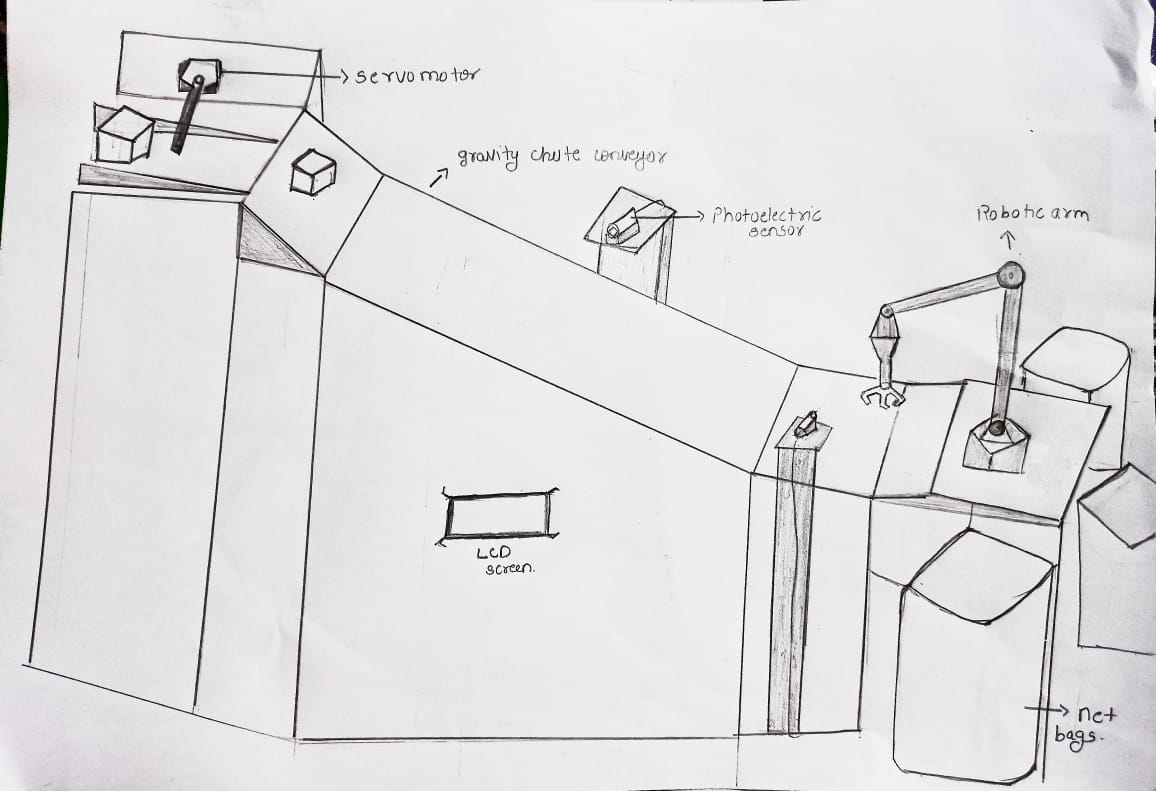 servomotor
gravity chute conveyor
Photoelectric
sensor
Robotic arm
LCD
screen.
net
bags.